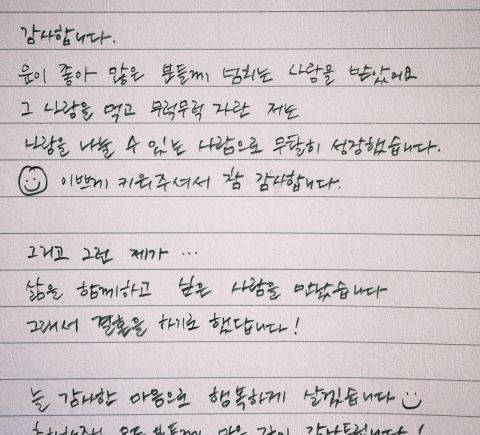 감사합니다.
운이 좋아 많은 분들께 넘치는 사랑을 받았어요
그 사랑을 먹고 무럭무럭 자란 저는
사랑을 나눌 수 있는 사람으로 무탈히 성장했습니다.
이쁘게 키워주셔서 참 감사합니다.
그리고 그런 제가 ...
삶을 함께하고 싶은 사람을 만났습니다
그래서 결혼을 하기로 했답니다!
늘 감사한 마음으로 행복하게 살겠습니다
모든 분들께 마음 깊이 감사드립니다!